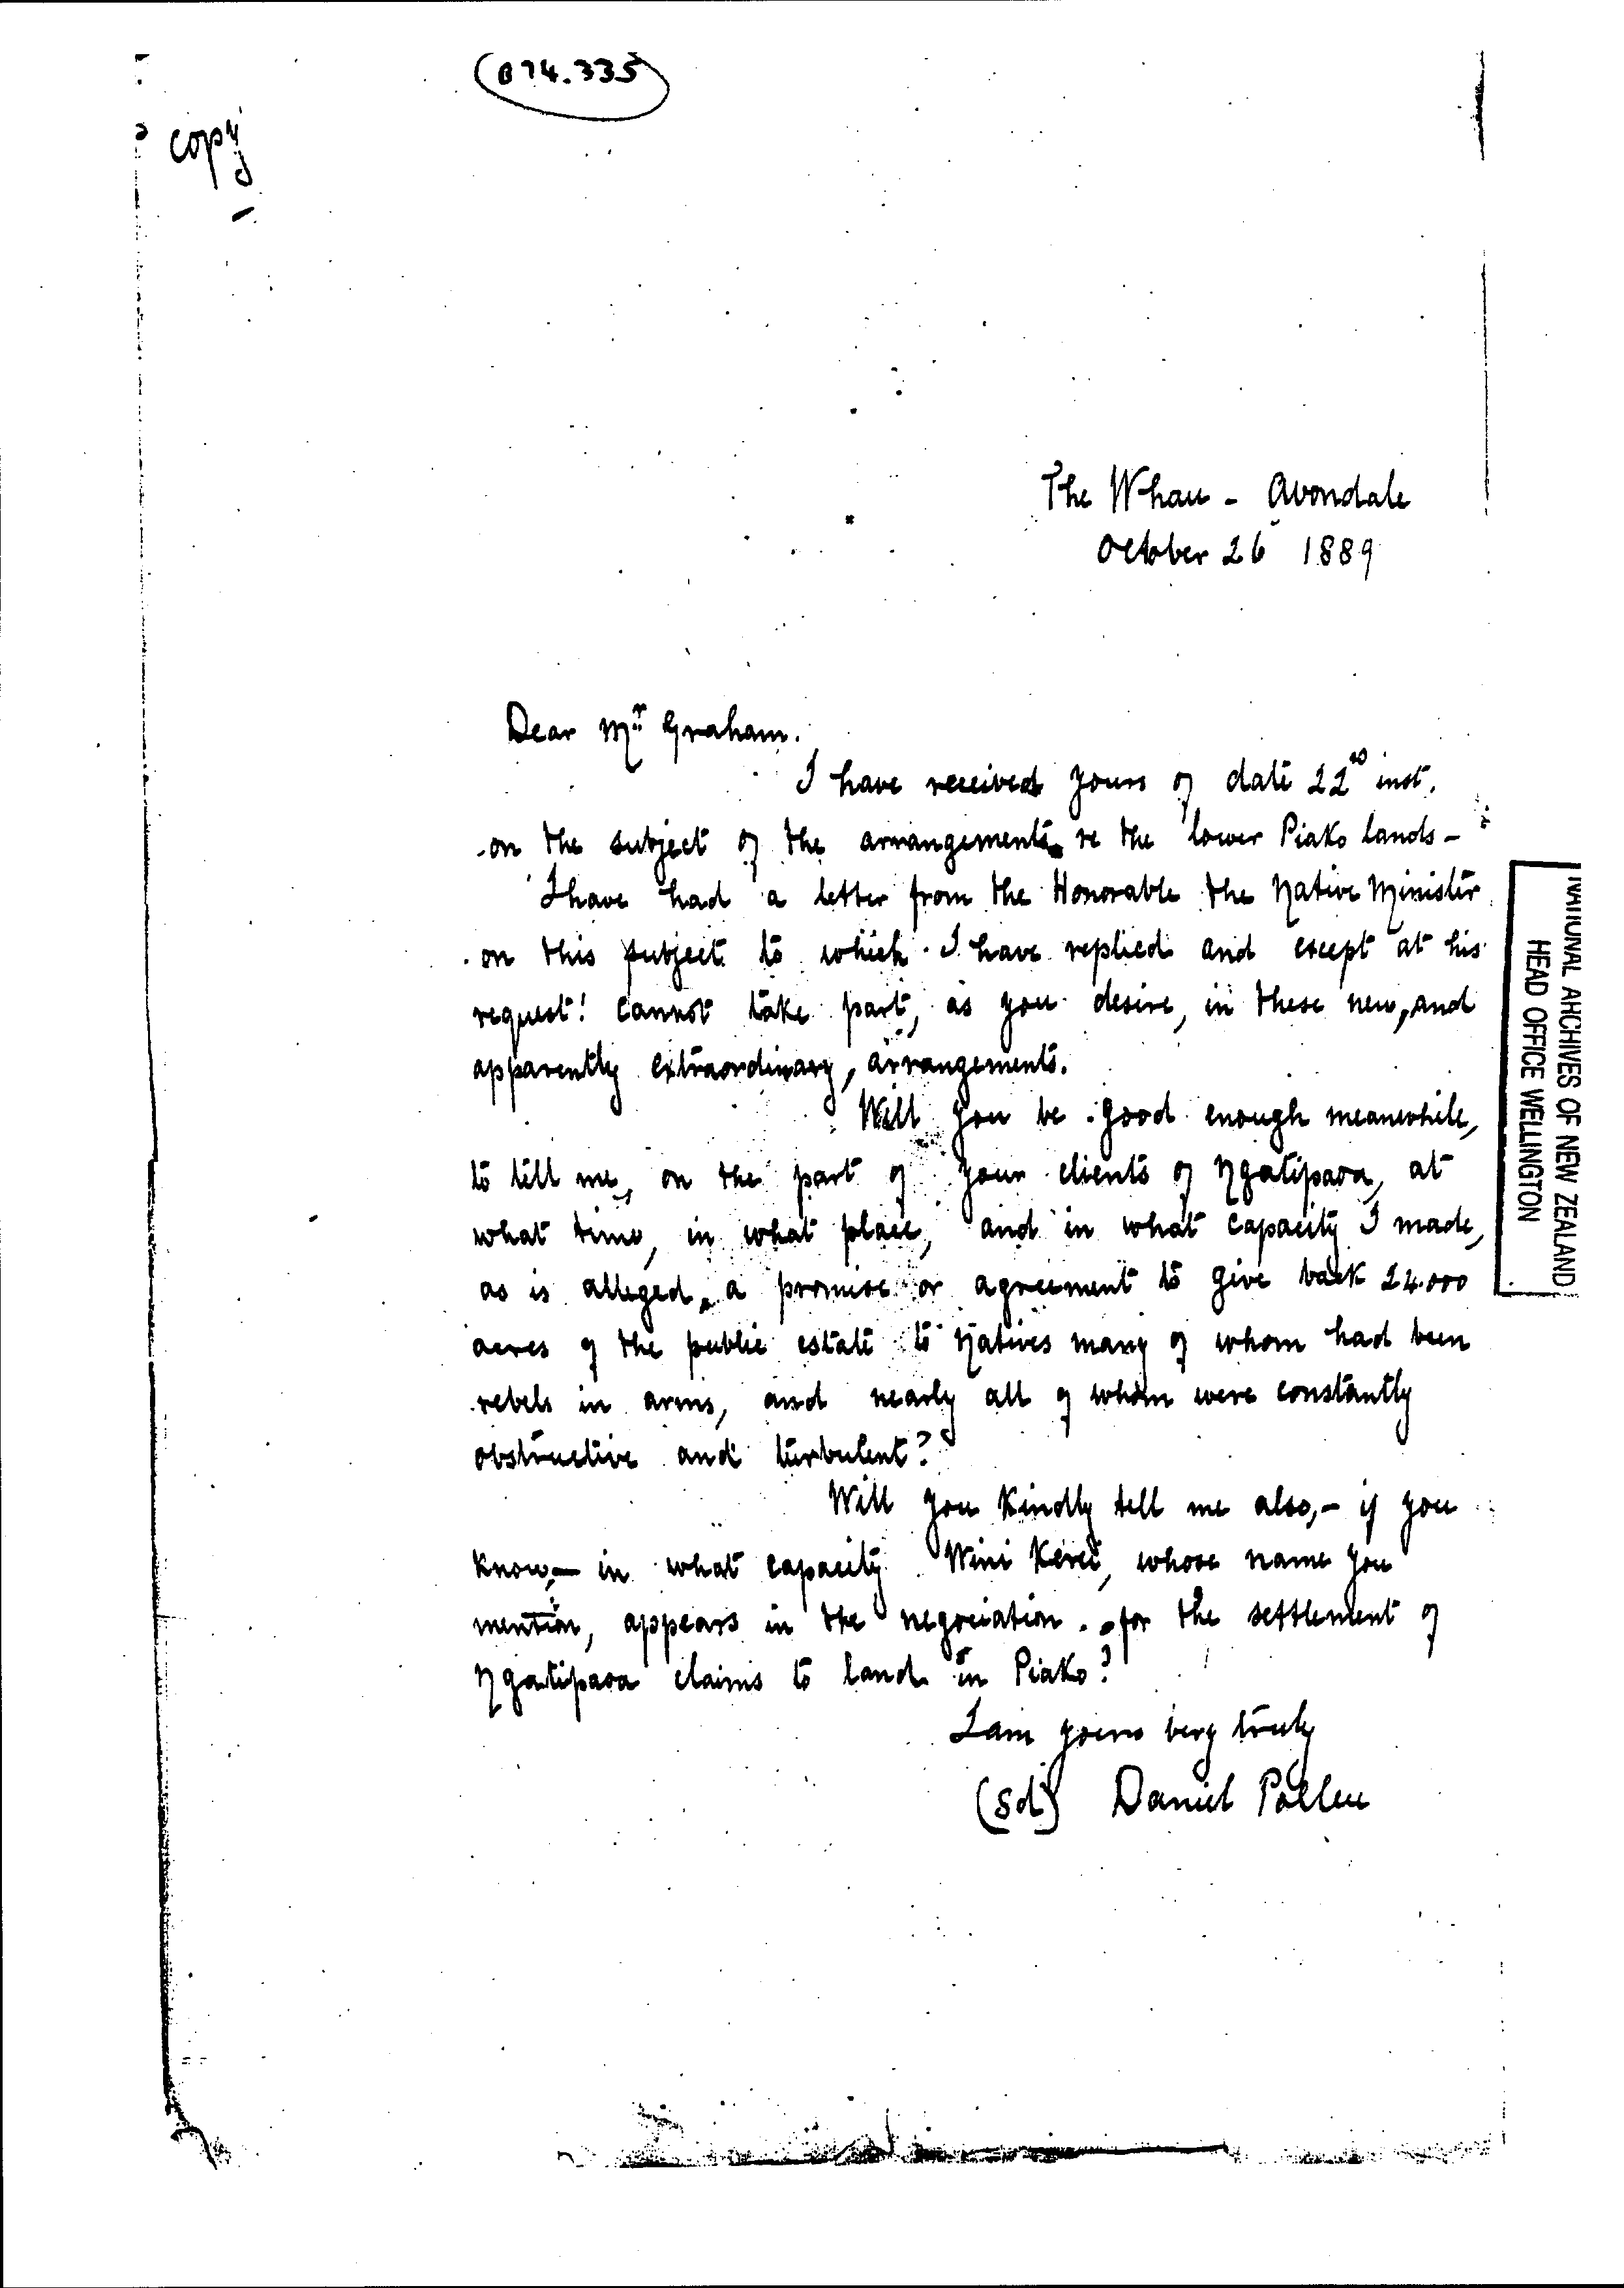 (B74.335)
copy
The Whau - Avondale
October 26 1889
Dear Mr Graham.
I have received yours of date 22nd inst.
on the subject of the arrangements re the lower Piako lands -
I have had a letter from the Honorable the Native Minister
on this subject to which I have replied and except at his
request I cannot take part, as you desire, in these new, and
apparently extraordinary, arrangements.
Will you be good enough meanwhile,
to tell me, on the part of your clients of Ngatipaoa, at
what time, in what place, and in what capacity I made,
as is alleged, a promise or agreement to give back 24.000
acres of the public estate to Natives many of whom had been
rebels in arms, and nearly all of whom were constantly
obstructive and turbulent?
Will you kindly tell me also, - if you
know, - in what capacity Wini Kerei, whose name you
mention, appears in the negociation for the settlement of
Ngatipaoa claims to land in Piako?
I am yours very truly
(sd) Daniel Pollen
NATIONAL ARCHIVES OF NEW ZEALAND
HEAD OFFICE WELLINGTON